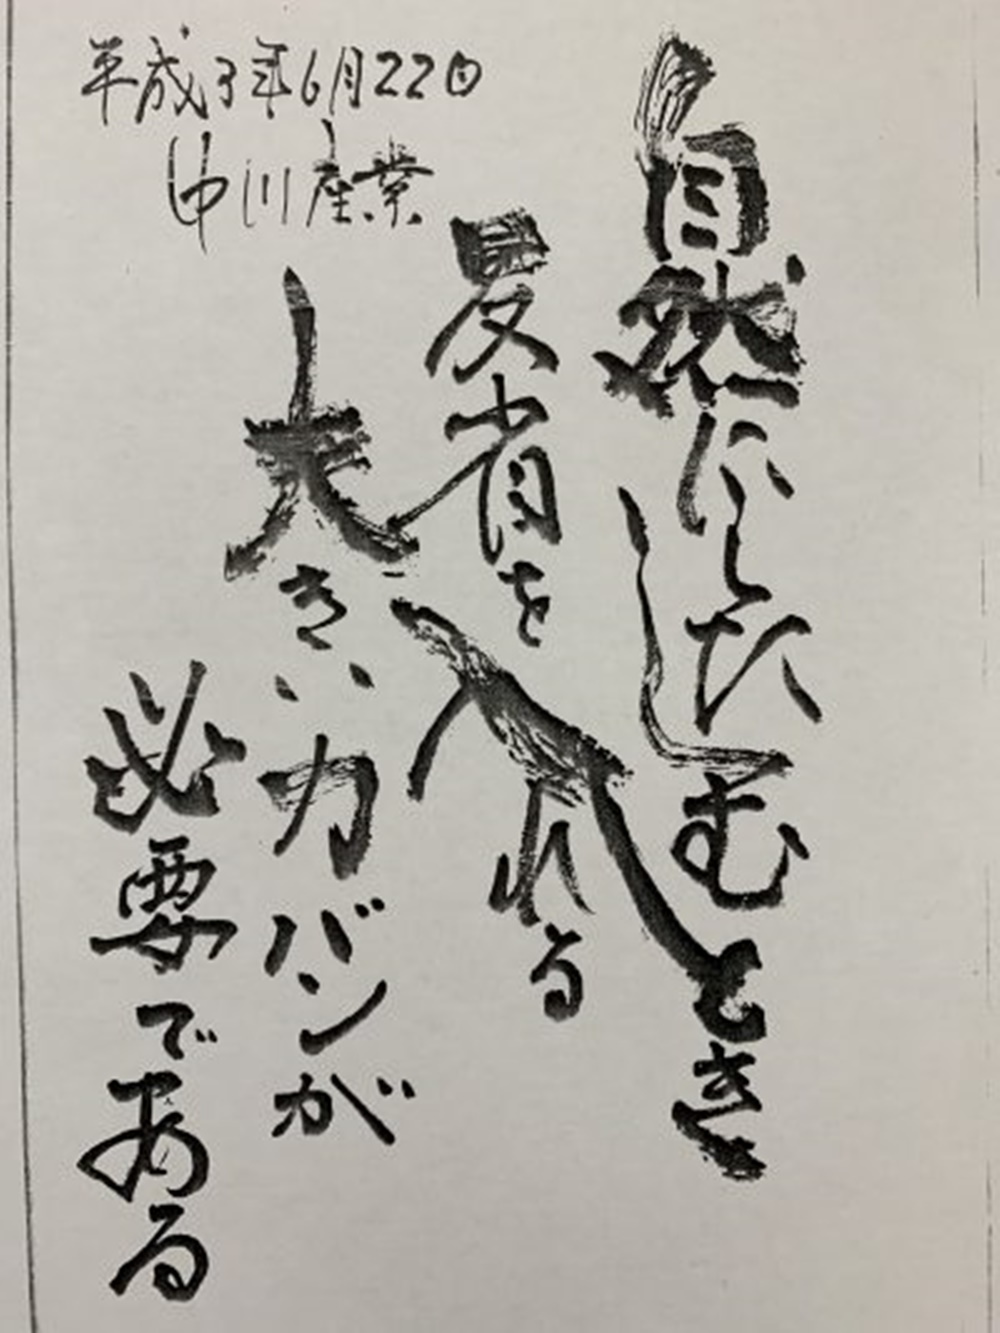 自然にしたしむとき
反省を入れる
大きいカバンが
必要である
平成3年6月22日
中川産業